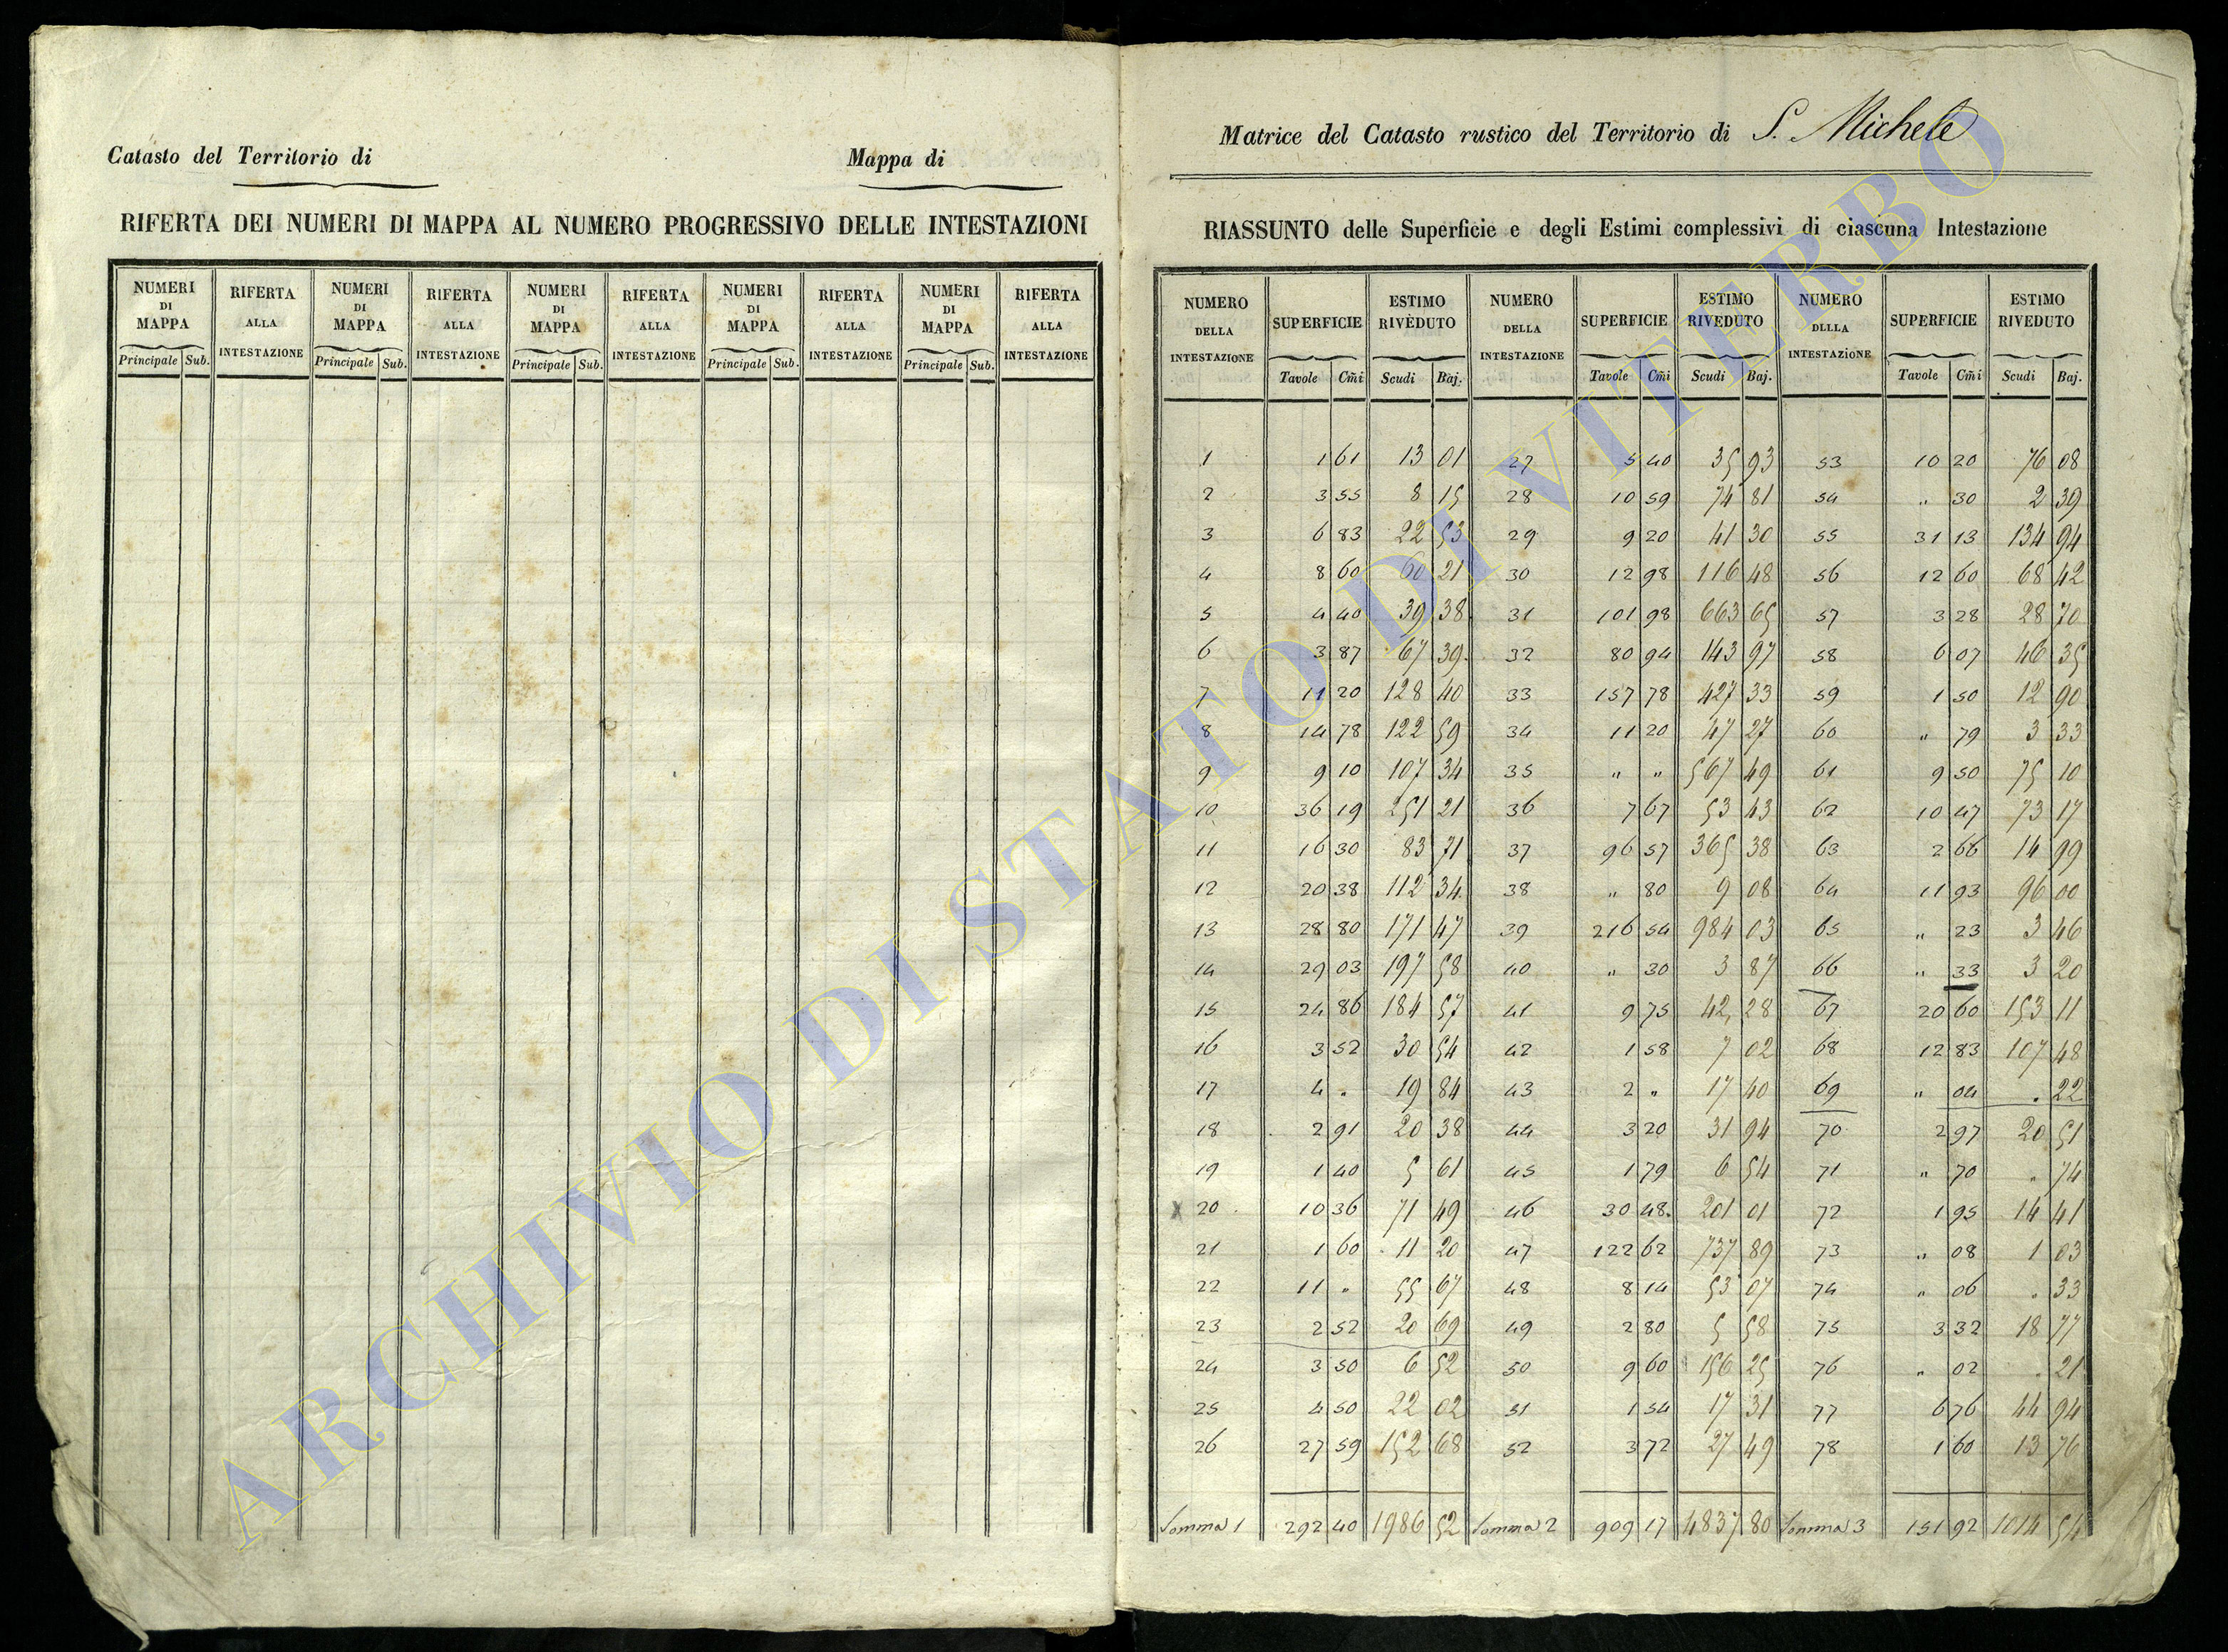 Catasto del Territorio di
Mappa di
RIFERTA DEI NUMERI DI MAPPA AL NUMERO PROGRESSIVO DELLE INTESTAZIONI
NUMERI DI MAPPA RIFERTA ALLA INTESTAZIONE NUMERI DI MAPPA RIFERTA ALLA INTESTAZIONE NUMERI DI MAPPA RIFERTA ALLA INTESTAZIONE NUMERI DI MAPPA RIFERTA ALLA INTESTAZIONE NUMERI DI MAPPA RIFERTA ALLA INTESTAZIONE
Principale Sub. Principale Sub. Principale Sub. Principale Sub. Principale Sub.
Matrice del Catasto rustico del Territorio di S. Michele
RIASSUNTO delle Superficie e degli Estimi complessivi di ciascuna Intestazione
NUMERO DELLA INTESTAZIONE SUPERFICIE ESTIMO RIVEDUTO NUMERO DELLA INTESTAZIONE SUPERFICIE ESTIMO RIVEDUTO NUMERO DLLLA INTESTAZIONE SUPERFICIE ESTIMO RIVEDUTO
Tavole Cm̃i Scudi Baj. Tavole Cm̃i Scudi Baj. Tavole Cm̃i Scudi Baj.
1 1 61 13 01 27 5 40 35 93 53 10 20 76 08
2 3 55 8 15 28 10 59 74 81 54 " 30 2 39
3 6 83 22 53 29 9 20 41 30 55 31 13 134 94
4 8 60 60 21 30 12 98 116 48 56 12 60 68 42
5 4 40 39 38 31 101 98 663 65 57 3 28 28 70
6 3 87 67 39 32 80 94 143 97 58 6 07 46 35
7 11 20 128 40 33 157 78 427 33 59 1 50 12 90
8 14 78 122 59 34 11 20 47 27 60 " 79 3 33
9 9 10 107 34 35 " " 567 49 61 9 50 75 10
10 36 19 251 21 36 7 67 53 43 62 10 47 73 17
11 16 30 83 71 37 96 57 365 38 63 2 66 14 99
12 20 38 112 34 38 " 80 9 08 64 11 93 96 00
13 28 80 171 47 39 216 54 984 03 65 " 23 3 46
14 29 03 197 58 40 " 30 3 87 66 " 33 3 20
15 24 86 184 57 41 9 75 42 28 67 20 60 153 11
16 3 52 30 54 42 1 58 7 02 68 12 83 107 48
17 4 " 19 84 43 2 " 17 40 69 " 04 . 22
18 2 91 20 38 44 3 20 31 94 70 2 97 20 51
19 1 40 5 61 45 1 79 6 54 71 " 70 " 74
x 20 10 36 71 49 46 30 48 201 01 72 1 95 14 41
21 1 60 11 20 47 122 62 737 89 73 " 08 1 03
22 11 " 55 67 48 8 14 53 07 74 " 06 . 33
23 2 52 20 69 49 2 80 5 58 75 3 32 18 77
24 3 50 6 52 50 9 60 156 25 76 " 02 . 21
25 4 50 22 02 51 1 54 17 31 77 6 76 44 94
26 27 59 152 68 52 3 72 27 49 78 1 60 13 76
Somma 1 292 40 1986 52 Somma 2 909 17 4837 80 Somma 3 151 92 1014 54
ARCHIVIO DI STATO DI VITERBO